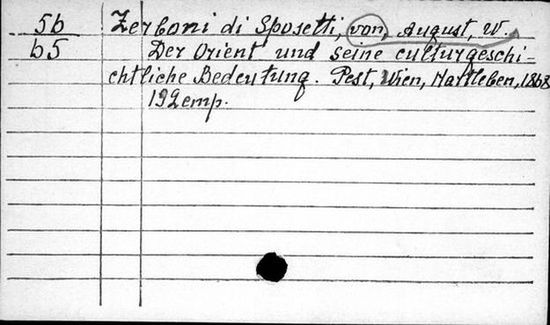 5b Zerboni di Sposetti, von, August, W.
b5 Der Orient und seine culturgeschi-
chtliche Bedeutung. Pest, Wien, Hartleben, 1868
192emp.